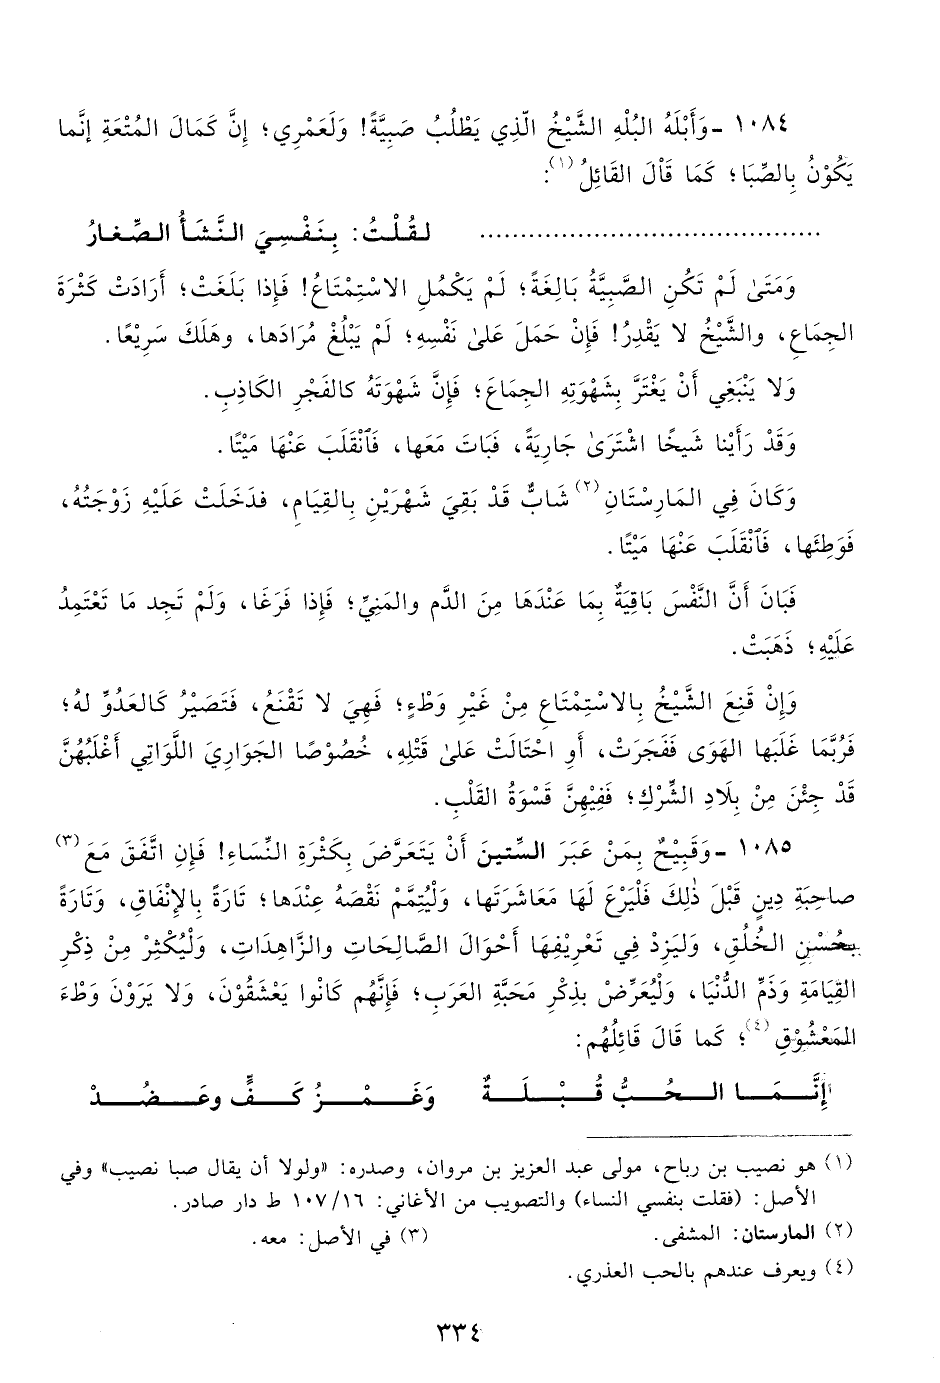 ١٠٨٤ - وَأَبْلَهُ البُلْهِ الشَّيْخُ الّذِي يَطْلُبُ صَبِيَّةً! وَلَعَمْرِي؛ إِنَّ كَمَالَ المُتْعَةِ إِنَّما
يَكُوْنُ بِالصِّبَا؛ كَمَا قَالَ القَائِلُ(١):
........................................ لـقُـلْـتُ: بِـنَـفْـسِـيَ الـنَّـشَـأُ الـصِّـغـارُ
وَمَتَىٰ لَمْ تَكُنِ الصَّبِيَّةُ بَالِغَةً؛ لَمْ يَكْمُلِ الاسْتِمْتَاعُ! فَإِذا بَلَغَتْ؛ أَرَادَتْ كَثْرَةَ
الجِمَاعِ، والشَّيْخُ لا يَقْدِرُ! فَإِنْ حَمَلَ عَلىٰ نَفْسِهِ؛ لَمْ يَبْلُغْ مُرَادَها، وهَلَكَ سَرِيْعًا.
وَلا يَنْبَغِي أَنْ يَغْتَرَّ بِشَهْوَتِهِ الجِمَاعَ؛ فَإِنَّ شَهْوَتَهُ كالفَجْرِ الكَاذِبِ.
وَقَدْ رَأَيْنا شَيخًا اشْتَرَىٰ جَارِيَةً، فَبَاتَ مَعَها، فَٱنْقَلَبَ عَنْهَا مَيْتًا.
وَكَانَ فِي المَارِسْتَانِ(٢) شَابٌّ قَدْ بَقِيَ شَهْرَيْنِ بِالقِيَامِ، فدَخَلَتْ عَلَيْهِ زَوْجَتُهُ،
فَوَطِئَها، فَٱنْقَلَبَ عَنْهَا مَيْتًا.
فَبَانَ أَنَّ النَّفْسَ بَاقِيَةٌ بِمَا عَنْدَهَا مِنَ الدَّمِ والمَنِيِّ؛ فَإِذا فَرَغَا، وَلَمْ تَجِد مَا تَعْتَمِدُ
عَلَيْهِ؛ ذَهَبَتْ.
وَإِنْ قَنِعَ الشَّيْخُ بِالاسْتِمْتَاعِ مِنْ غَيْرِ وَطْءٍ؛ فَهِيَ لا تَقْنَعُ، فَتَصِيْرُ كَالعَدُوِّ لهُ؛
فَرُبَّمَا غَلَبَها الهَوَى فَفَجَرَتْ، أَو احْتَالَتْ عَلىٰ قَتْلِهِ، خُصُوْصًا الجَوَارِيَ اللَّوَاتِي أَغْلَبُهُنَّ
قَدْ جِئْنَ مِنْ بِلَادِ الشِّرْكِ؛ فَفِيْهِنَّ قَسْوَةُ القَلْبِ.
١٠٨٥ - وَقَبِيْحٌ بِمَنْ عَبَرَ السِّتينَ أَنْ يَتَعَرَّضَ بِكَثْرَةِ النِّسَاءِ! فَإِنِ اتَّفَقَ مَعَ(٣)
صاحِبَةِ دِينٍ قَبْلَ ذٰلِكَ فَلْيَرْعَ لَهَا مَعَاشَرَتَها، وَلْيُتِمَّمْ نَقْصَهُ عِنْدَها؛ تَارَةً بِالإِنْفَاقِ، وَتَارَةً
بِحُسْنِ الخُلُقِ، وَليَزِدْ فِي تَعْرِيفِهَا أَحْوَالَ الصَّالِحَاتِ والزَّاهِدَاتِ، وَلْيُكْثِرْ مِنْ ذِكْرِ
القِيَامَةِ وَذَمِّ الدُّنْيَا، وَلْيُعَرِّضْ بذِكْرِ مَحَبَّةِ العَرَبِ؛ فَإِنَّهُم كَانُوا يَعْشَقُوْنَ، وَلا يَرَوْنَ وَطْءَ
المَعْشُوْقِ(٤)؛ كَما قَالَ قَائِلُهُم:
إِنَّـمَـا الـحُـبُّ قُـبْـلَـةٌ وَغَـمْـزُ كَـفٍّ وعَـضُـدْ
(١) هو نصيب بن رباح، مولى عبد العزيز بن مروان، وصدره: «ولولا أن يقال صبا نصيب» وفي
الأصل: (فقلت بنفسي النساء) والتصويب من الأغاني: ١٠٧/١٦ ط دار صادر.
(٢) المارستان: المشفى. (٣) في الأصل: معه.
(٤) ويعرف عندهم بالحب العذري.
٣٣٤